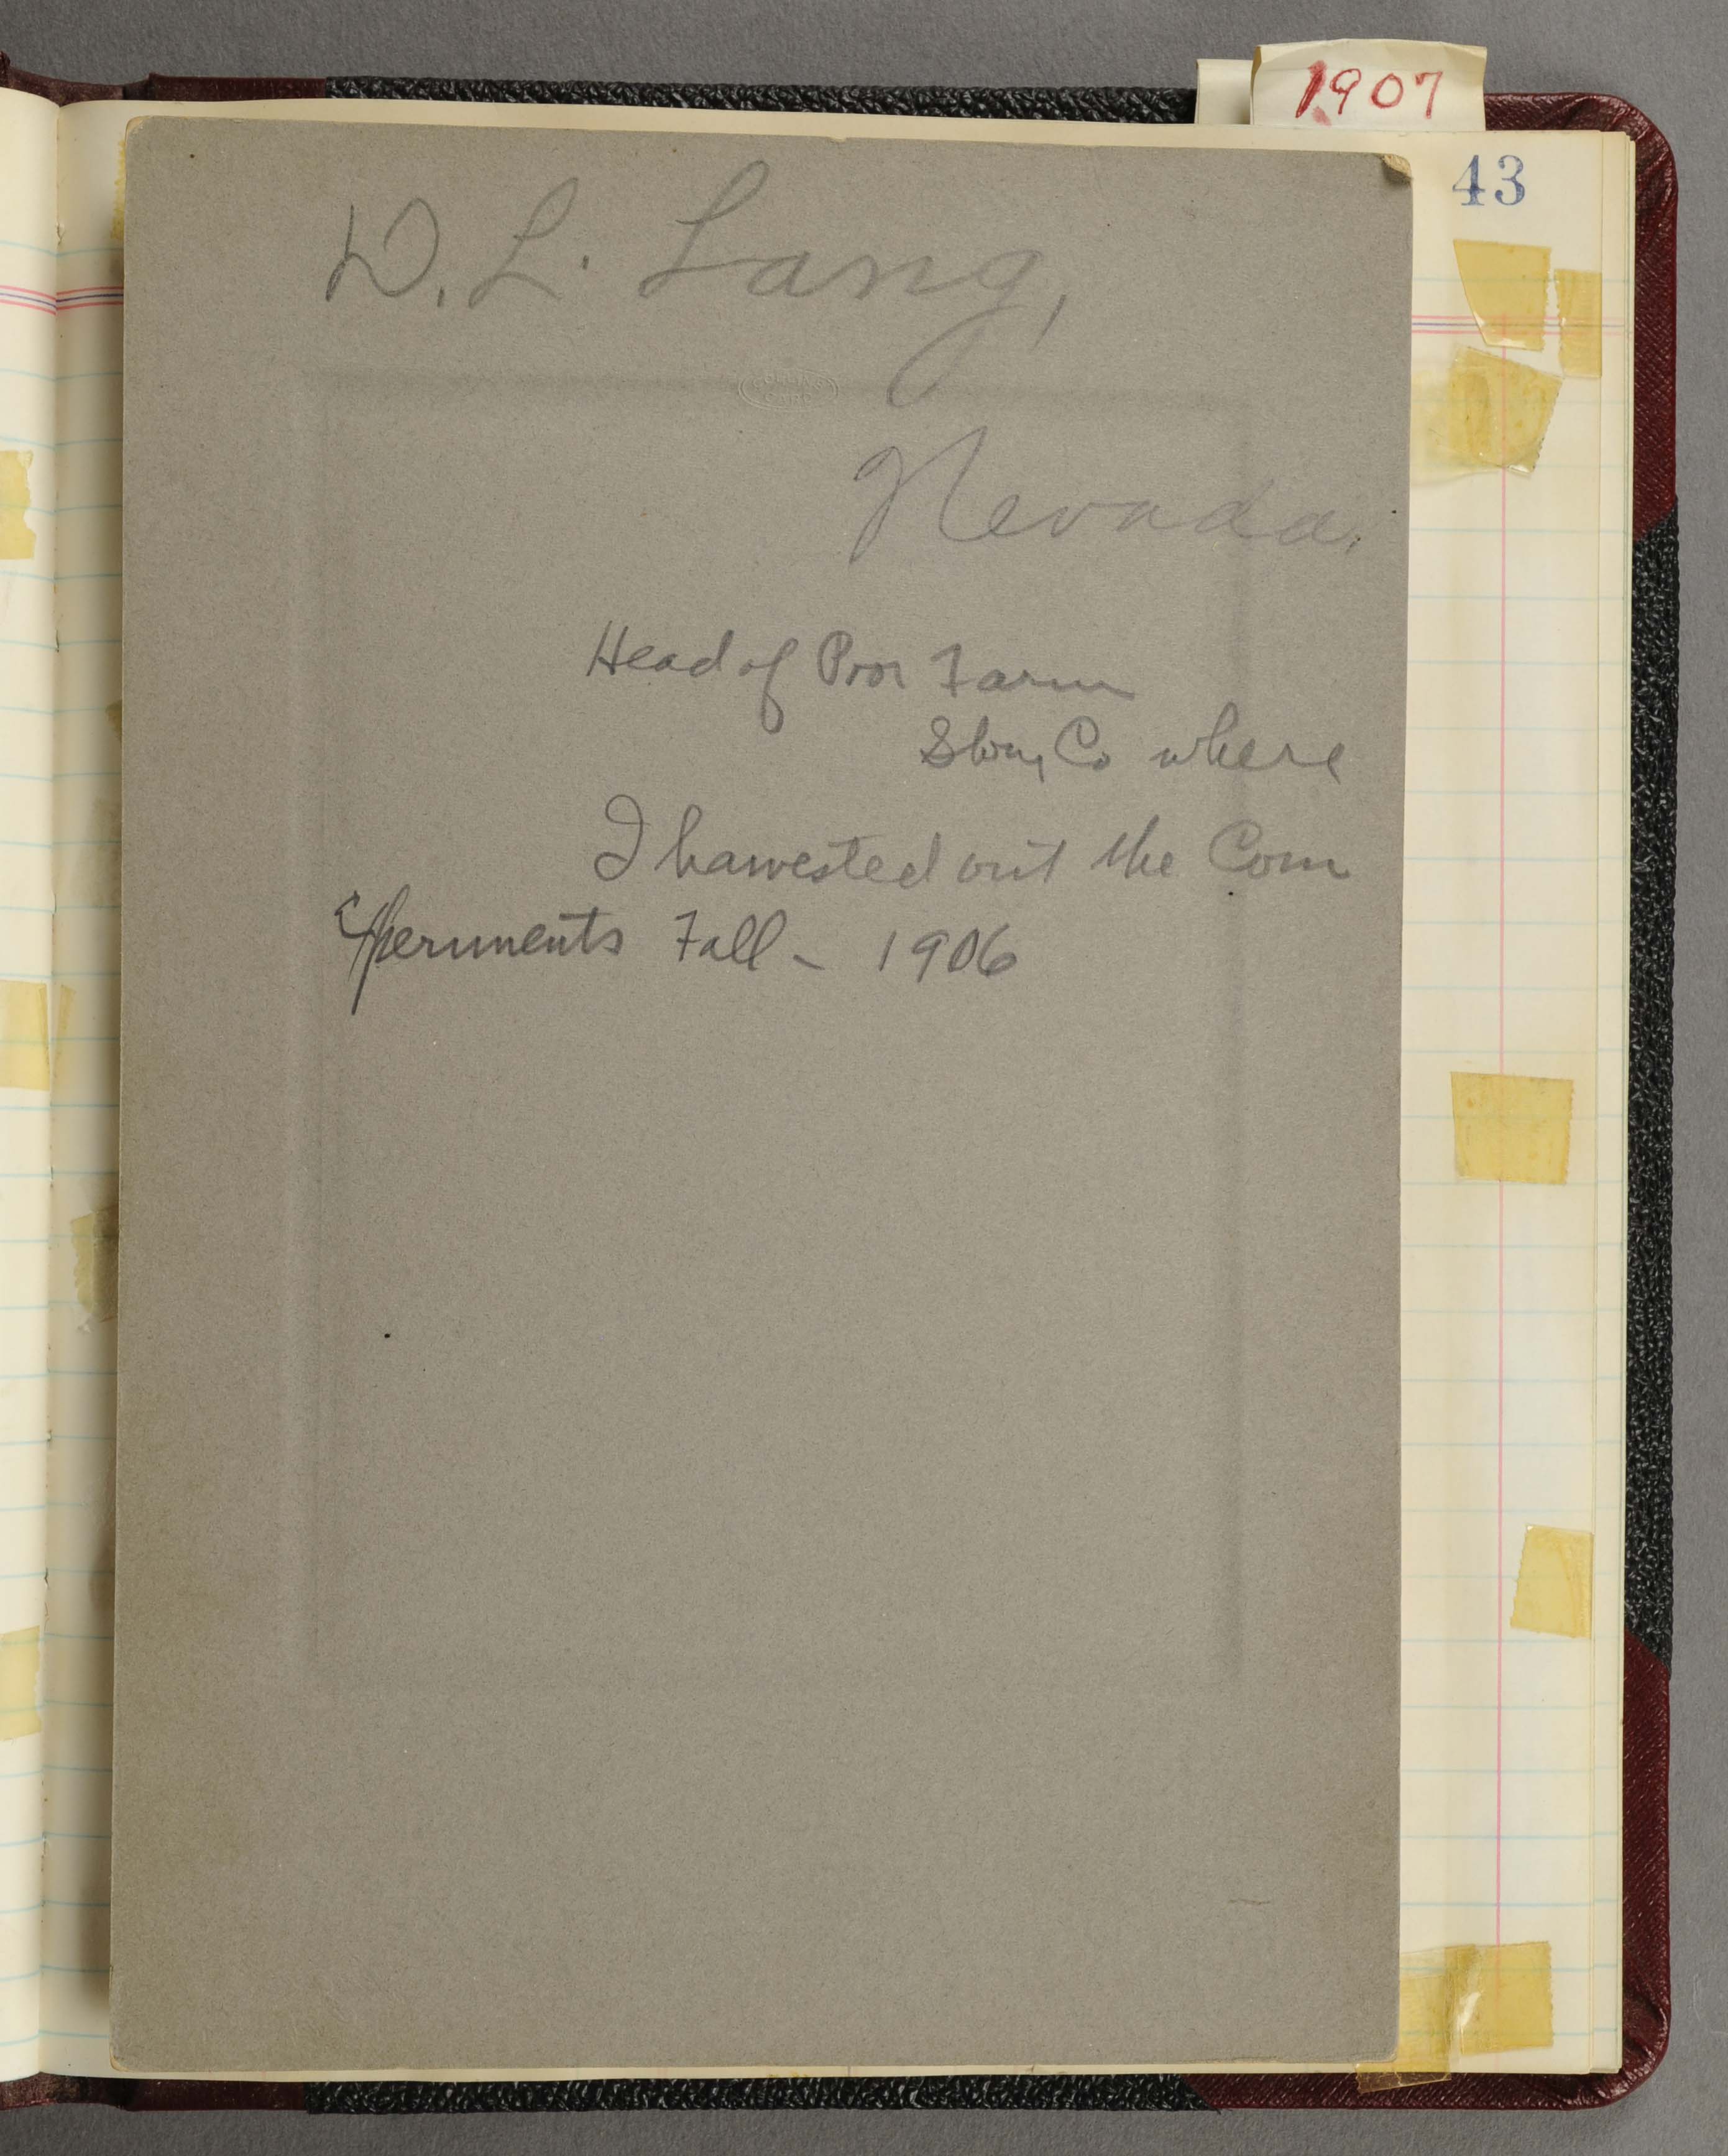 1907
43
D. L. Lang,
Nevada.
Head of Poor Farm
Story Co where
I harvested out the Corn
Experiments Fall - 1906
COLLINS
CARD